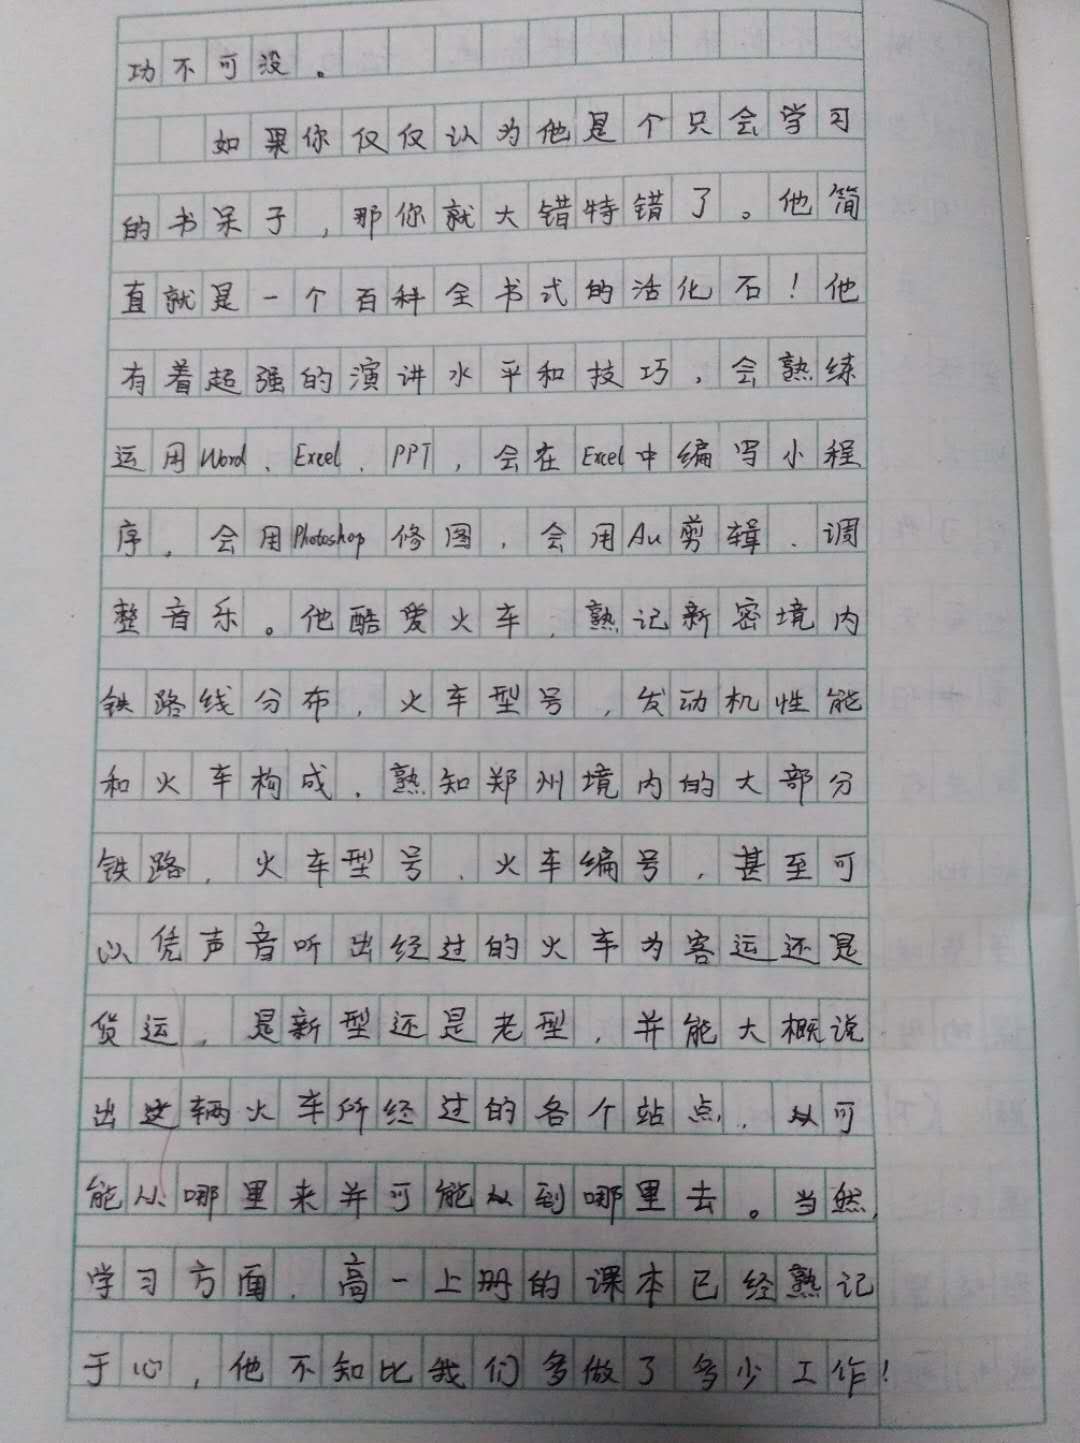 功不可没。
如果你仅仅认为他是个只会学习
的书呆子，那你就大错特错了。他简
直就是一个百科全书式的活化石！他
有着超强的演讲水平和技巧，会熟练
运用Word、Excel、PPT，会在Excel中编写小程
序，会用Photoshop修图，会用Au剪辑、调
整音乐。他酷爱火车，熟记新密境内
铁路线分布，火车型号，发动机性能
和火车构成，熟知郑州境内的大部分
铁路，火车型号、火车编号，甚至可
以凭声音听出经过的火车为客运还是
货运，是新型还是老型，并能大概说
出这辆火车所经过的各个站点，从可
能从哪里来并可能从到哪里去。当然，
学习方面，高一上册的课本已经熟记
于心，他不知比我们多做了多少工作！